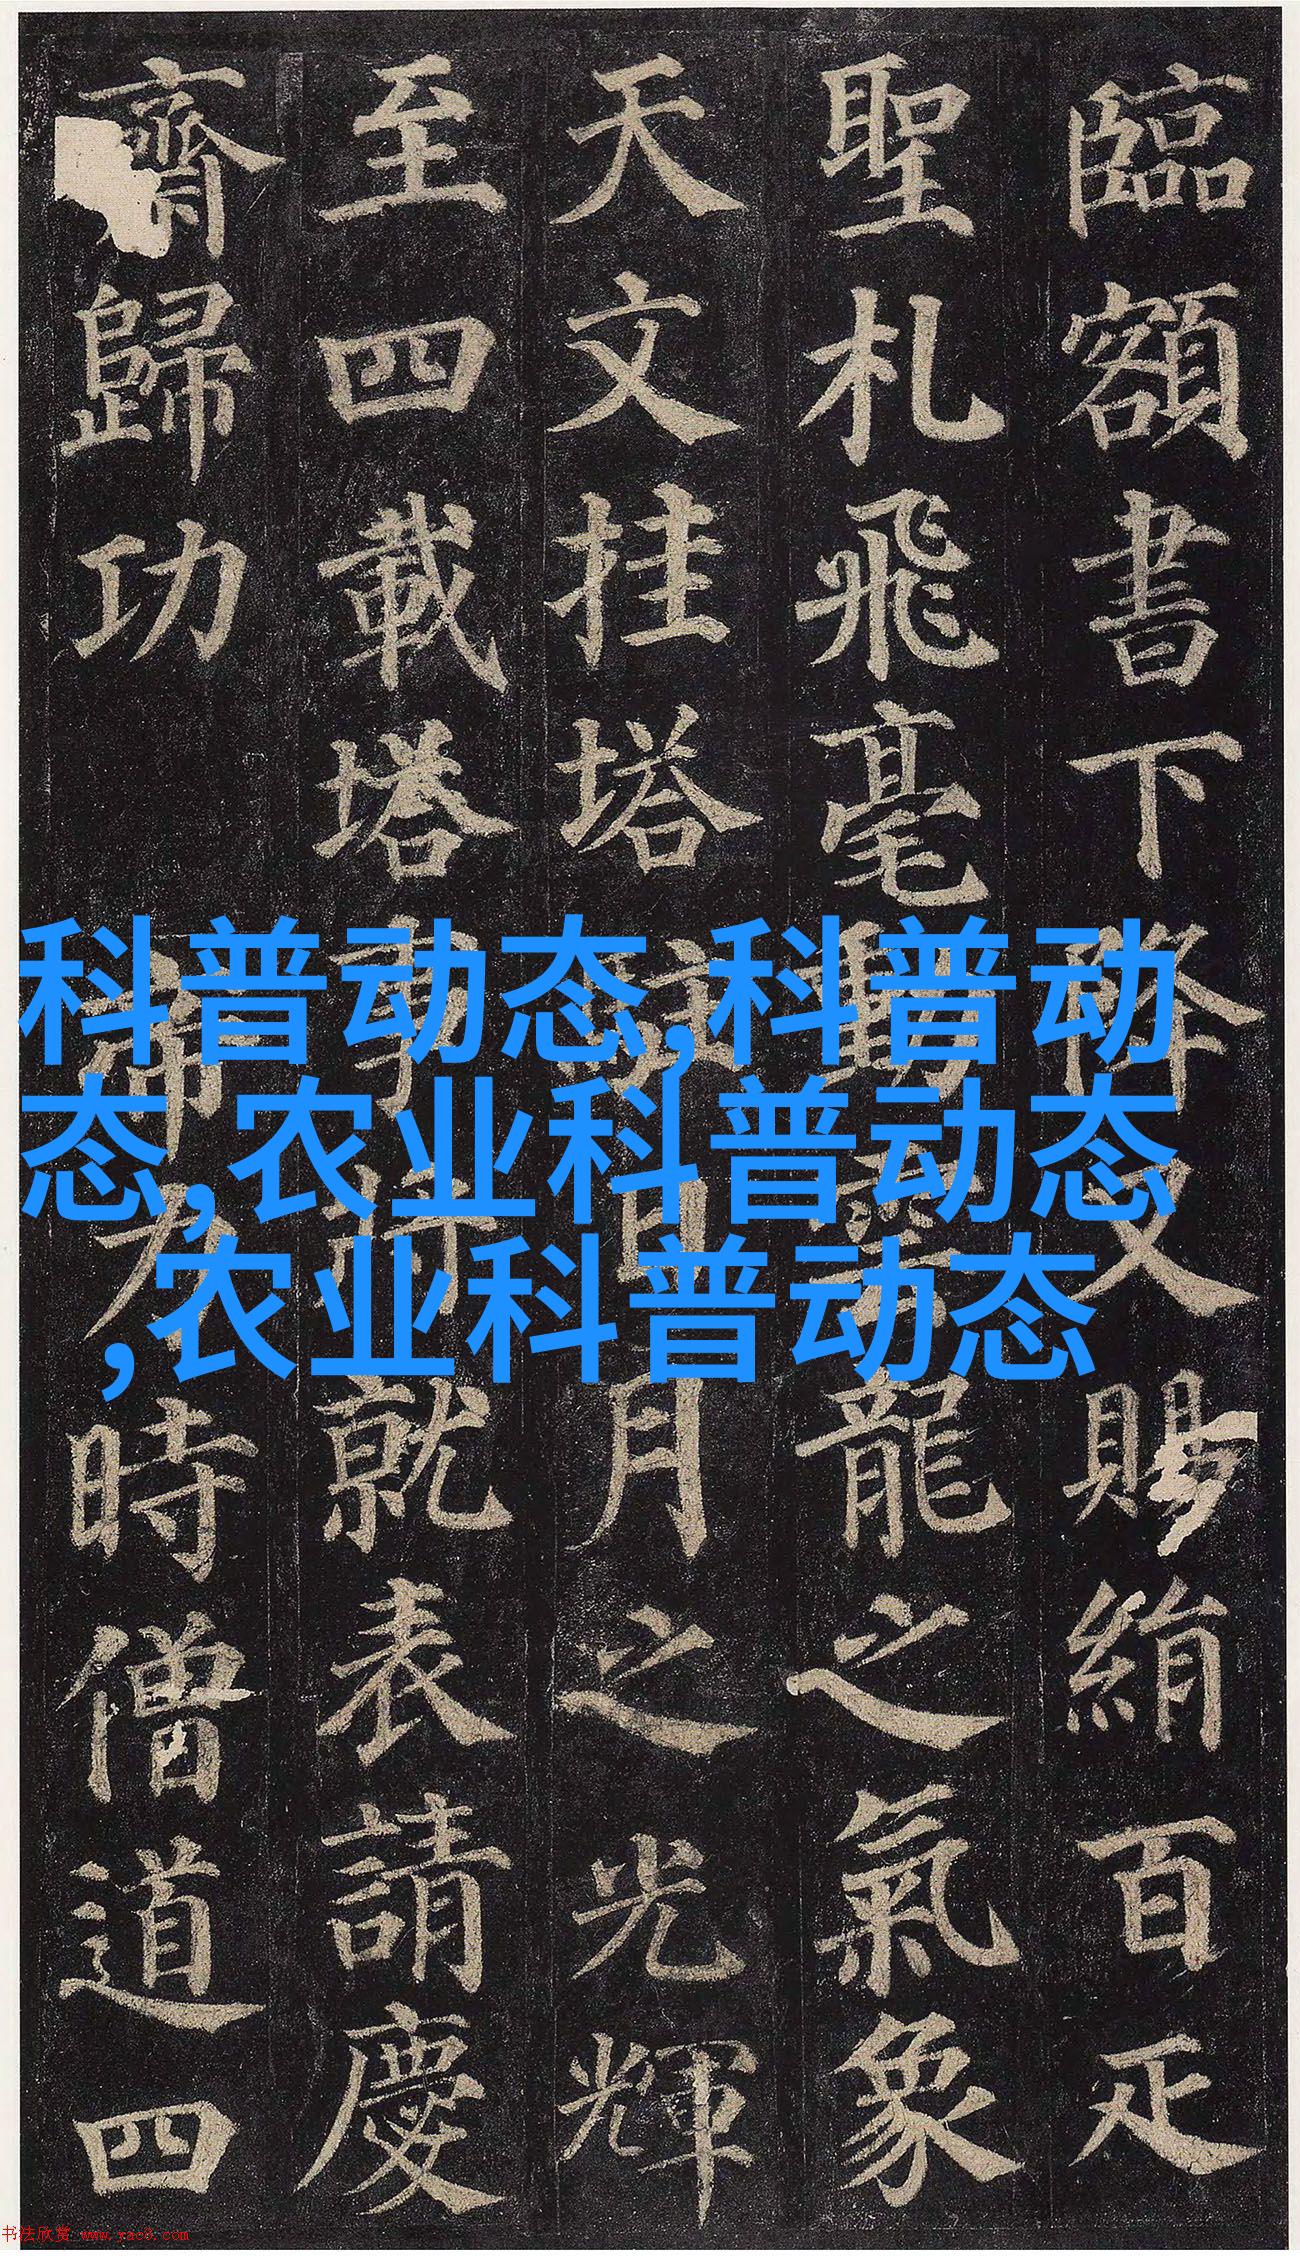 臨額書下降又賜絹百疋
聖札飛毫動雲龍之氣象
天文挂塔駐日月之光輝
至四載塔事將就表請慶
齋歸功 帝力時僧道四
科普动态,科普动
态,农业科普动态
,农业科普动态
书法欣赏 www.yac8.com